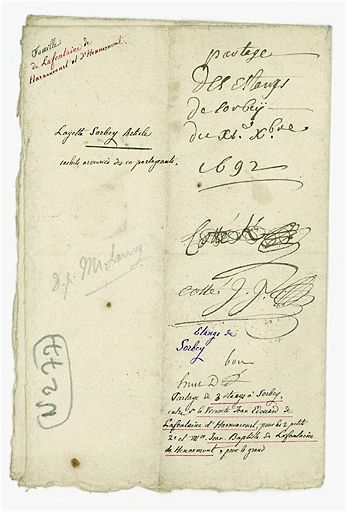 Famille
de Lafontaine de
Harnoncourt et d'Hennemont.
Layette Sorbey Article
cachets armoriés des co-partageants.
N 277
partage
des Estangs
de Sorbey
du XI.e X.bre
1692
Cotté
cotté J. J.
Etangs de
Sorbey
bon
Partage de 3 étangs à Sorbey,
entre Sr le Vicomte Jean Edouard de
Lafontaine d'Harnoncourt, pour les 2 petits
2e et Mre Jean Baptiste de Lafontaine
de Hennemont, pour le grand